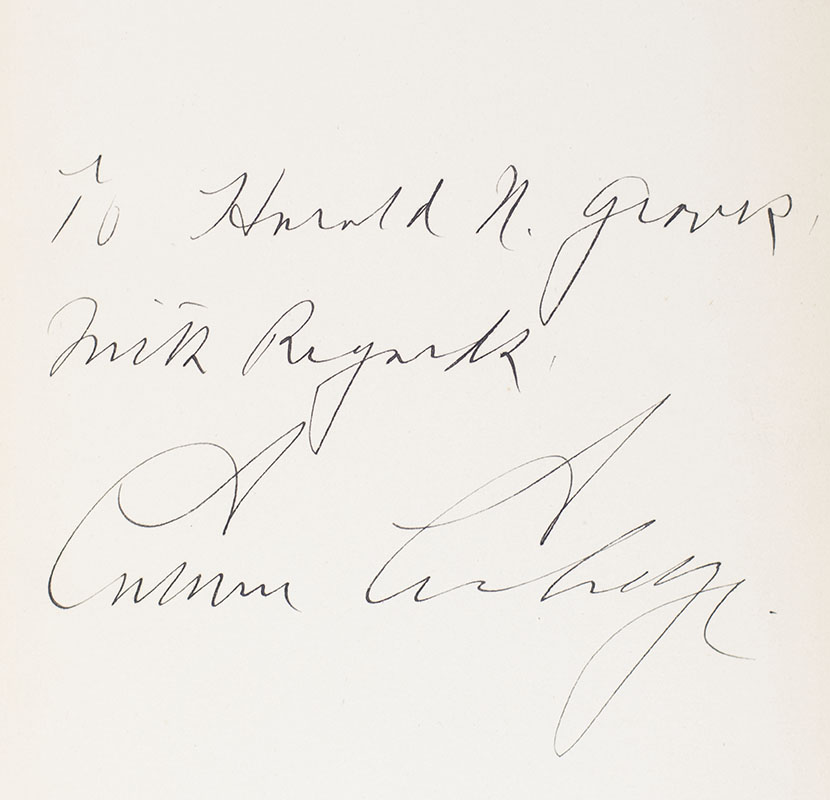 To Harold N. Groves,
With Regards,
Calvin Coolidge